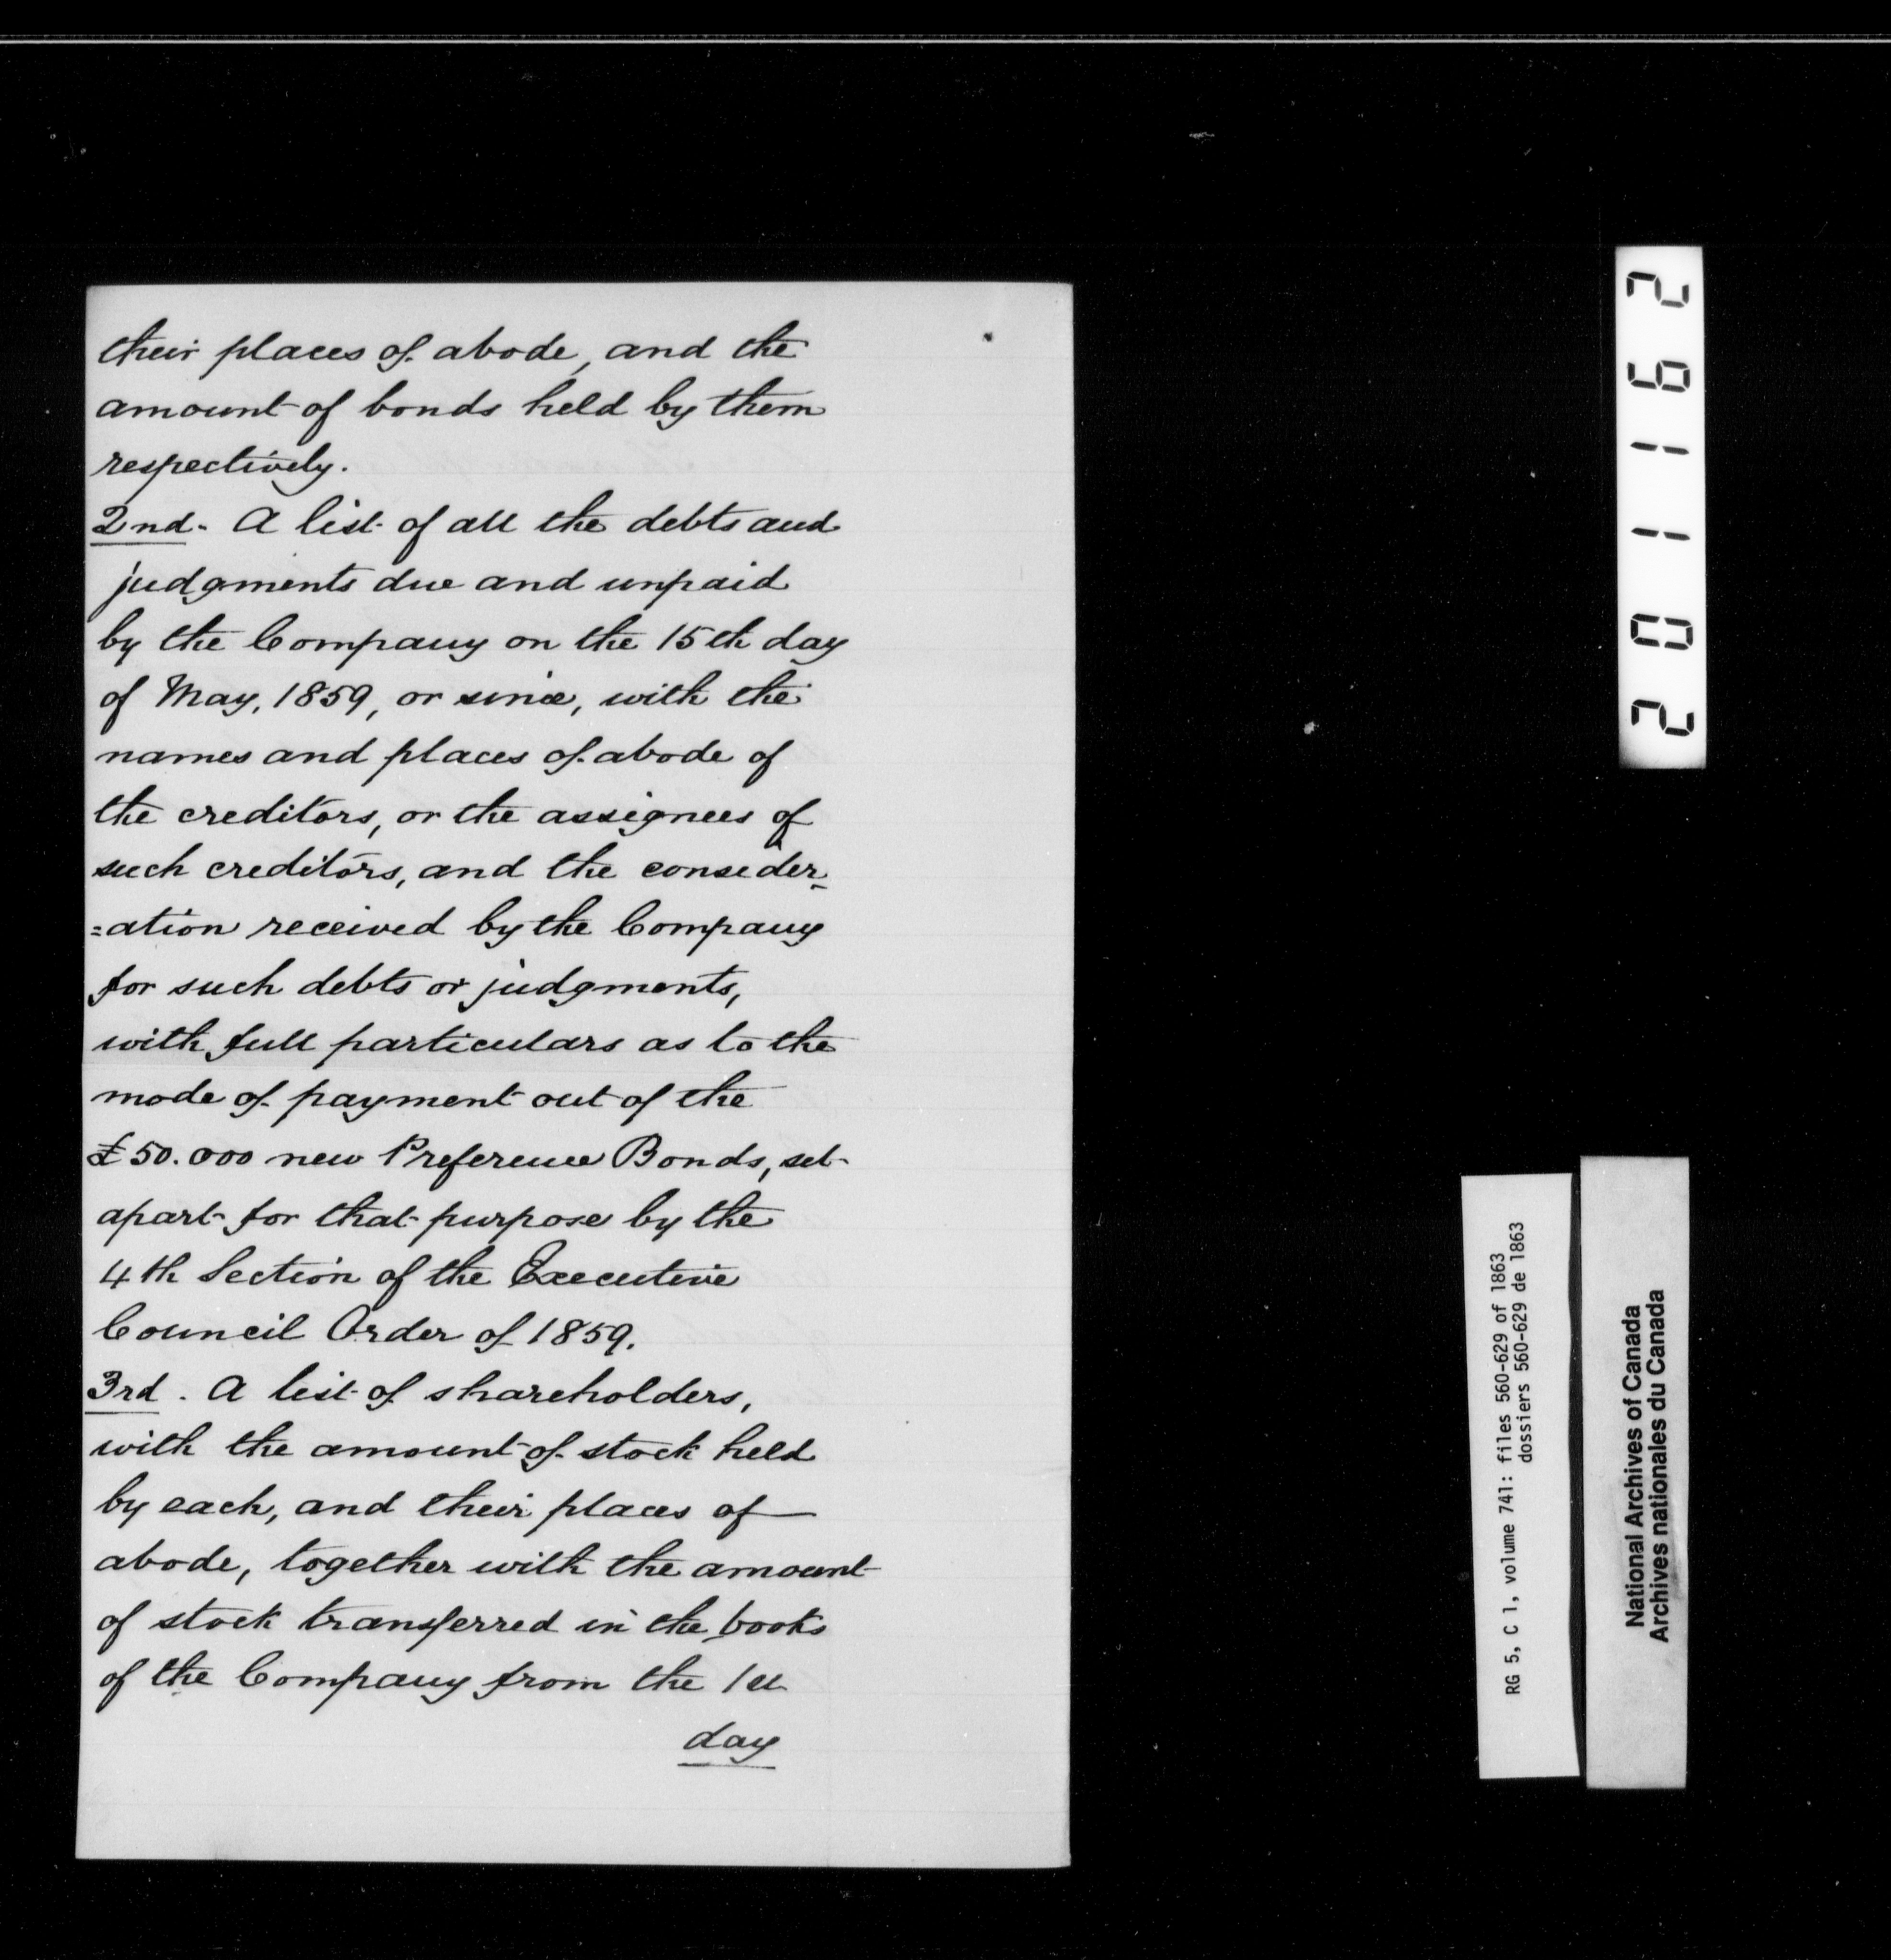 their places of abode, and the
amount of bonds held by them
respectively.
2nd. A list of all the debts and
judgments due and unpaid
by the Company on the 15th day
of May, 1859, or since, with the
names and places of abode of
the creditors, or the assignees of
such creditors, and the consider-
=ation received by the Company
for such debts or judgments,
with full particulars as to the
mode of payment out of the
£50.000 new Preference Bonds, set
apart for that purpose by the
4th Section of the Executive
Council Order of 1859.
3rd. A list of shareholders,
with the amount of stock held
by each, and their places of
abode, together with the amount
of stock transferred in the books
of the Company from the 1st
day
201162
RG 5, C 1, volume 741: files 560-629 of 1863
dossiers 560-629 de 1863
National Archives of Canada
Archives nationales du Canada